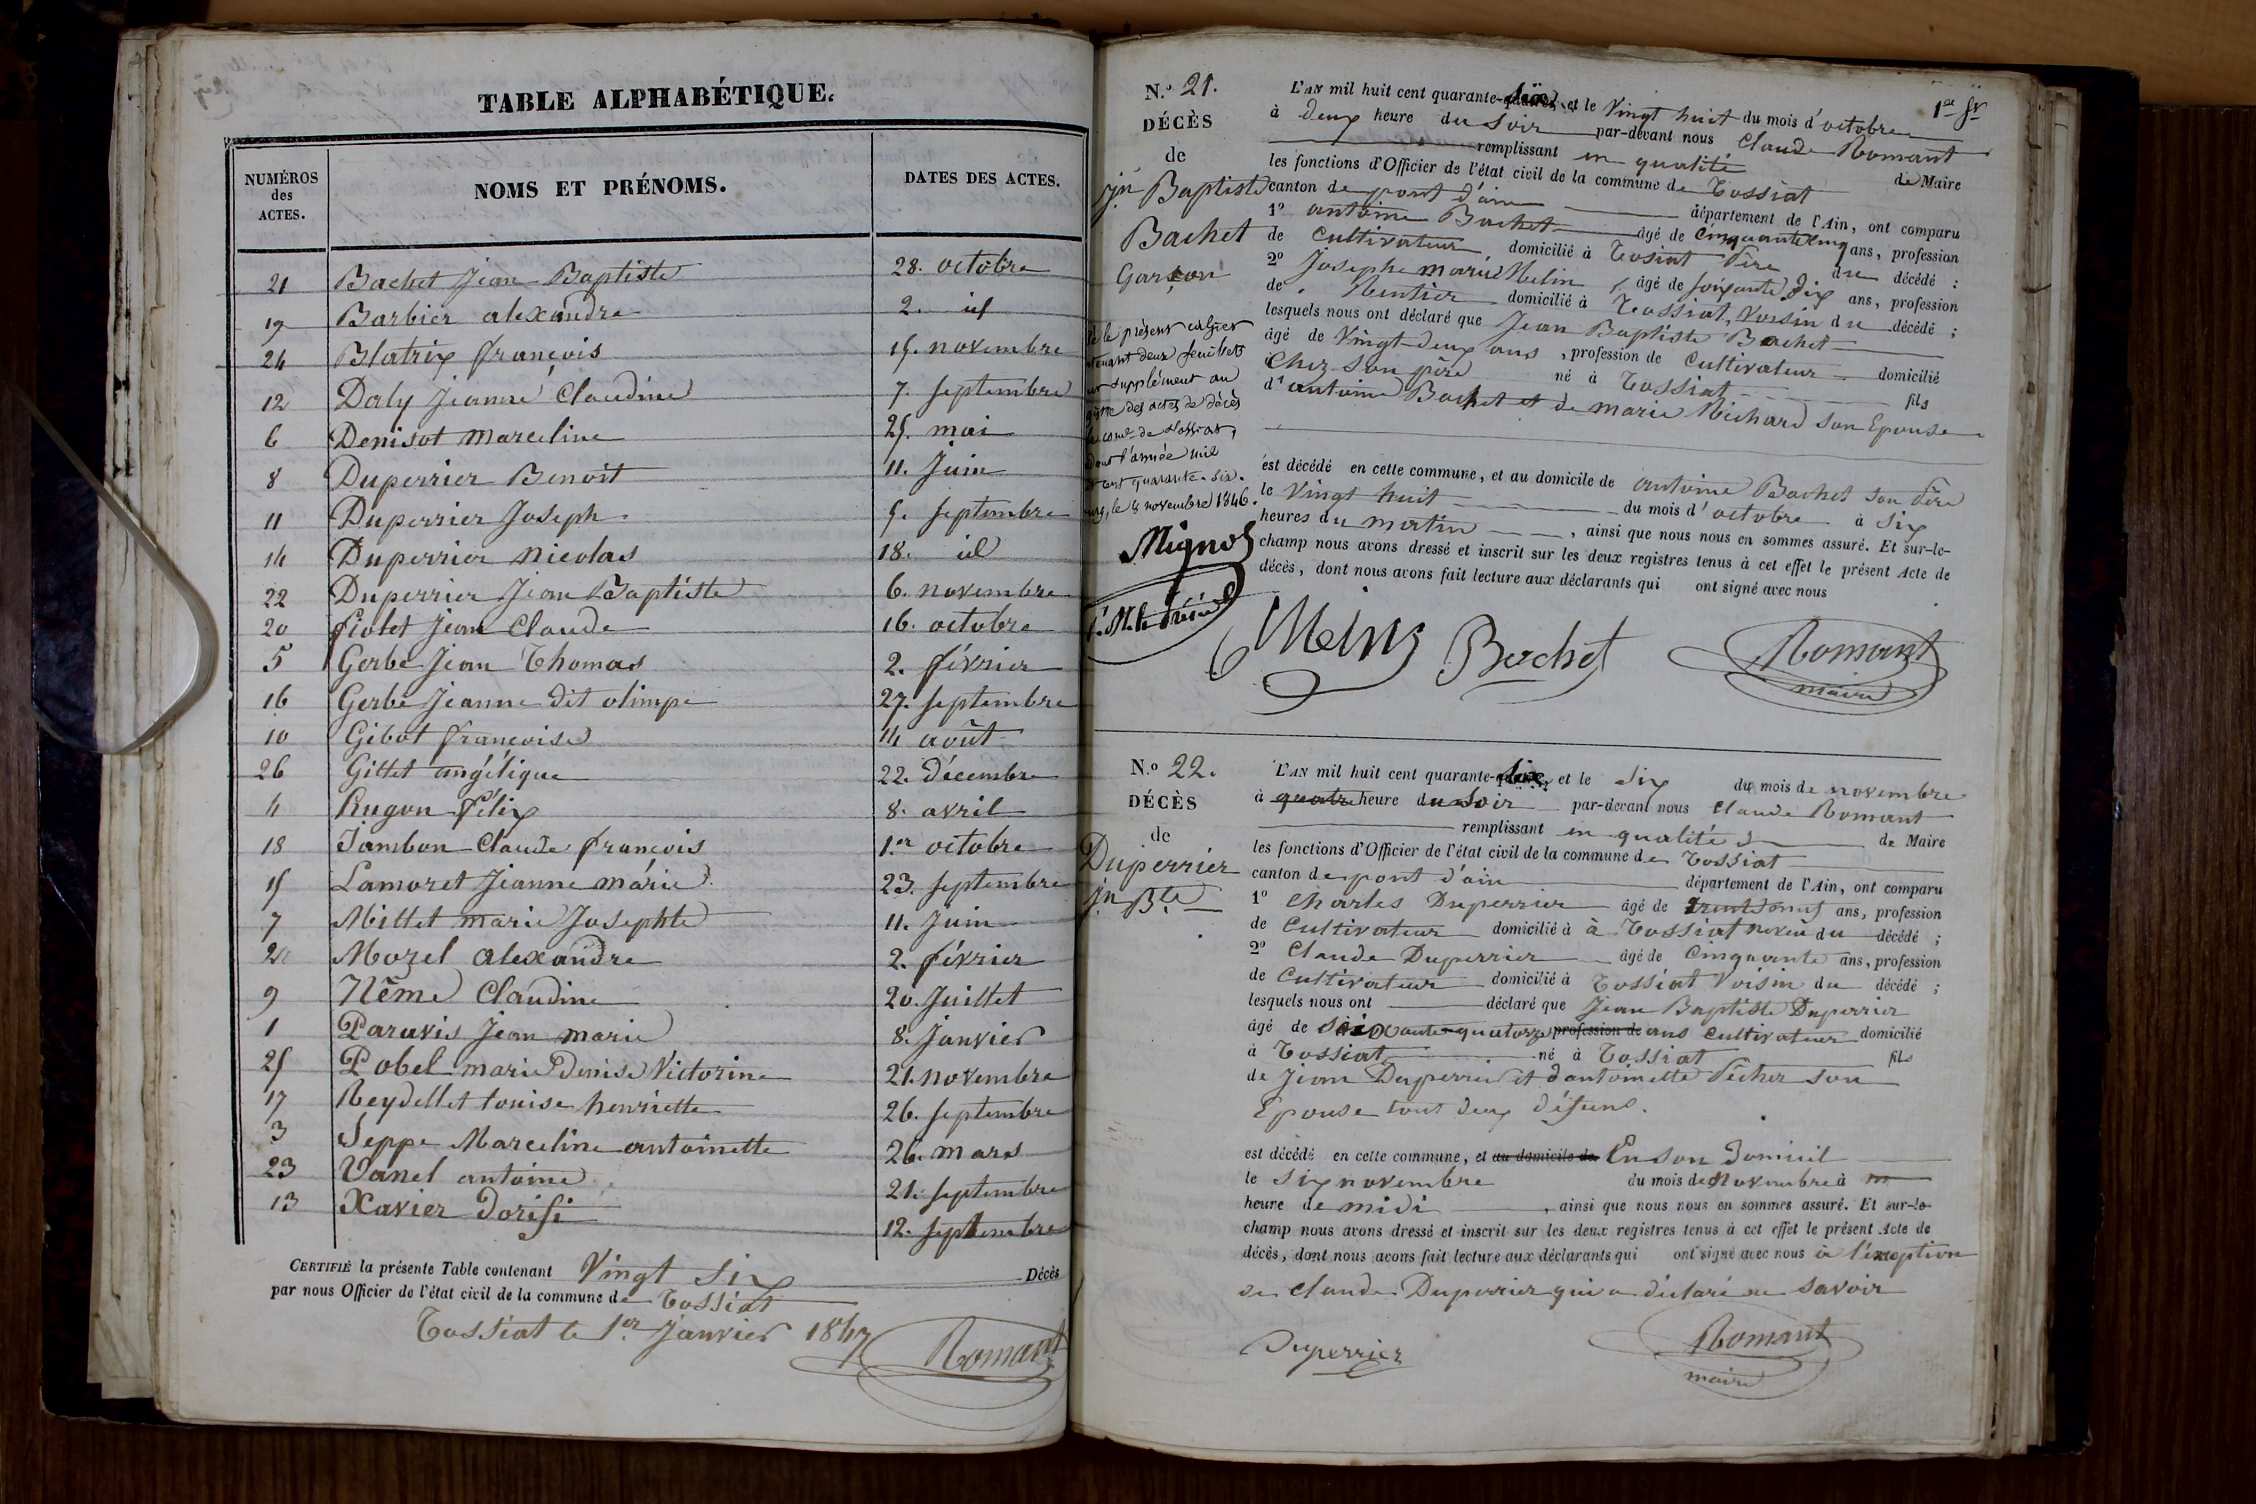 TABLE ALPHABÉTIQUE.
NUMÉROS des ACTES. NOMS ET PRÉNOMS. DATES DES ACTES.
21 Bachet Jean Baptiste 28. octobre
19 Barbier alexandre 2. id
24 Blatrix françois 15. novembre
12 Daly Jeanne Claudine 7. septembre
6 Denisot marceline 25. mai
8 Duperrier Benoit 11. Juin
11 Duperrier Joseph 5. septembre
14 Duperrier nicolas 18. id
22 Duperrier Jean Baptiste 6. novembre
20 fiolet Jean Claude 16. octobre
5 Gerbe Jean Thomas 2. février
16 Gerbe Jeanne dit olimpe 27. septembre
10 Gibot françoise août
26 Gillet angélique 22. décembre
4 Hugon félix 8. avril
18 Jambon Claude françois 1.er octobre
15 Lamoret Jeanne marie 23. septembre
7 Millet marie Josephte 11. Juin
Mozel alexandre 2. février
9 Nême Claudine 20. Juillet
1 Paruvis Jean marie 8. Janvier
25 Pobel marie Denise Victorine 21. novembre
17 Reydellet louise henriette 26. septembre
3 Seppe Marceline antoinette 26. mars
23 Vanel antoine 21. septembre
13 Xavier Dorifi 12. septembre
CERTIFIÉ la présente Table contenant Vingt six Décès
par nous Officier de l'état civil de la commune de Tossiat
Tossiat le 1.er Janvier 1847
Romant
1er
N.º 21.
DÉCÈS
de
jn Baptiste
Bachet
Garçon
le présent cahier
deux feuillets
supplément au
des actes de décès
de Tossiat,
l'année mil
cent quarante-six.
le 4 novembre 1846.
Mignot
L'AN mil huit cent quarante-six et le Vingt huit du mois d'octobre
à deux heure du soir par-devant nous Claude Romant
remplissant en qualité de Maire
les fonctions d'Officier de l'état civil de la commune de Tossiat
canton de pont d'ain département de l'Ain, ont comparu
1º antoine Bachet âgé de cinquante cinq ans, profession
de Cultivateur domicilié à Tossiat Père du décédé :
2º Josephe marie Melin, âgé de soixante dix ans, profession
de Rentier domicilié à Tossiat, Voisin du décédé ;
lesquels nous ont déclaré que Jean Baptiste Bachet
âgé de Vingt-deux ans, profession de Cultivateur domicilié
Chez son père né à Tossiat fils
d'antoine Bachet et de marie Richard son Epouse
est décédé en cette commune, et au domicile de antoine Bachet son Père
le Vingt huit du mois d'octobre à six
heures du matin, ainsi que nous nous en sommes assuré. Et sur-le-
champ nous avons dressé et inscrit sur les deux registres tenus à cet effet le présent Acte de
décès, dont nous avons fait lecture aux déclarants qui ont signé avec nous
Bachet Romant
maire
N.º 22.
DÉCÈS
de
Duperrier
jn Bte
L'AN mil huit cent quarante-six, et le six du mois de novembre
à quatre heure du soir par-devant nous Claude Romant
remplissant en qualité de Maire
les fonctions d'Officier de l'état civil de la commune de Tossiat
canton de pont d'ain département de l'Ain, ont comparu
1º Charles Duperrier âgé de trente neuf ans, profession
de Cultivateur domicilié à à Tossiat neveu du décédé ;
2º Claude Duperrier âgé de Cinquante ans, profession
de Cultivateur domicilié à Tossiat Voisin du décédé ;
lesquels nous ont déclaré que Jean Baptiste Duperrier
âgé de soixante-quatorze profession de ans cultivateur domicilié
à Tossiat né à Tossiat fils
de Jean Duperrier et d'antoinette Pêcher son
Epouse tout deux défunt.
est décédé en cette commune, et au domicile de En son domicil
le six novembre du mois de Novembre à
heure de midi, ainsi que nous nous en sommes assuré. Et sur-le-
champ nous avons dressé et inscrit sur les deux registres tenus à cet effet le présent Acte de
décès, dont nous avons fait lecture aux déclarants qui ont signé avec nous à l'exeption
de Claude Duperrier qui a déclaré ne savoir
Duperrier Romant
maire